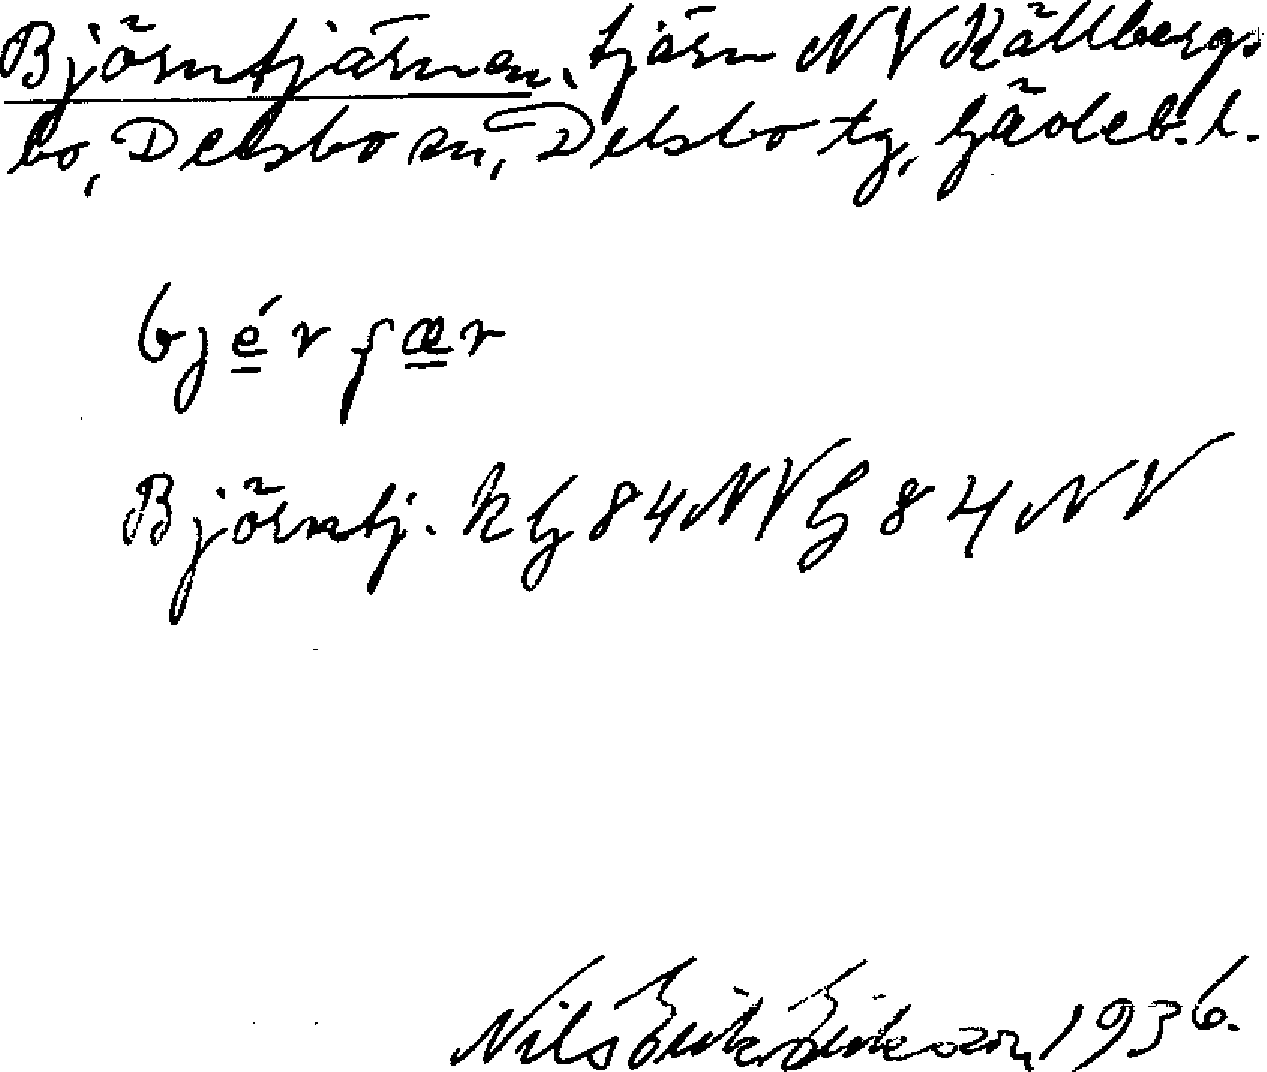 Björntjärnen, tjärn NV Källbergs
bo, Delsbo sn, Delsbo tg, Gävleb. l.
bjérʃær
Björntj. k G84NV G84NV
Nils Erik Eriksson, 1936.